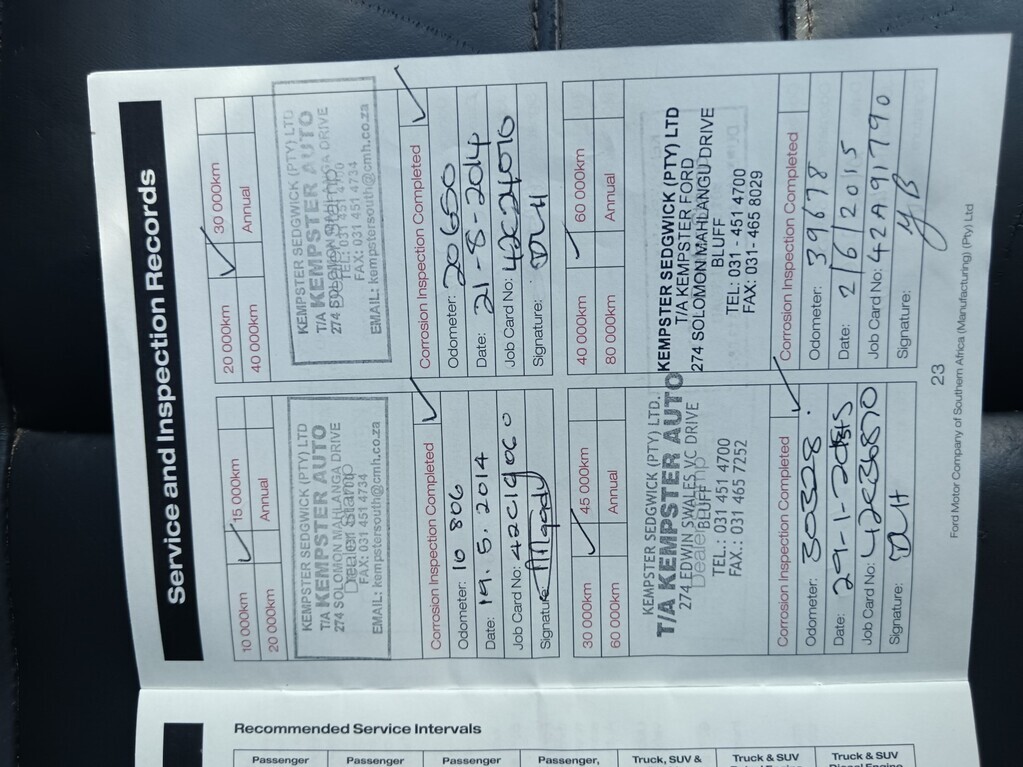 Service and Inspection Records
10 000km 15 000km
20 000km Annual
KEMPSTER SEDGWICK (PTY) LTD
T/A KEMPSTER AUTO
274 SOLOMON MAHLANGA DRIVE
Dealer Stamp
FAX: 031 451 4734
EMAIL: kempstersouth@cmh.co.za
Corrosion Inspection Completed
Odometer: 10 806
Date: 19.5.2014
Job Card No:
Signature:
20 000km 30 000km
40 000km Annual
KEMPSTER SEDGWICK (PTY) LTD
T/A KEMPSTER AUTO
274 SOLOMON MAHLANGA DRIVE
Dealer Stamp
TEL: 031 451 4700
FAX: 031 451 4734
EMAIL: kempstersouth@cmh.co.za
Corrosion Inspection Completed
Odometer: 20650
Date: 21-8-2014
Job Card No:
Signature:
30 000km 45 000km
60 000km Annual
KEMPSTER SEDGWICK (PTY) LTD.
T/A KEMPSTER AUTO
274 EDWIN SWALES VC DRIVE
Dealer Stamp
BLUFF
TEL.: 031 451 4700
FAX.: 031 465 7252
Corrosion Inspection Completed
Odometer: 30328.
Date: 29-1-2015
Job Card No:
Signature:
40 000km 60 000km
80 000km Annual
KEMPSTER SEDGWICK (PTY) LTD
T/A KEMPSTER FORD
274 SOLOMON MAHLANGU DRIVE
BLUFF
TEL: 031 - 451 4700
FAX: 031 - 465 8029
Corrosion Inspection Completed
Odometer: 39678
Date: 2/6/2015
Job Card No: 42A91790
Signature:
23
Ford Motor Company of Southern Africa (Manufacturing) (Pty) Ltd
Recommended Service Intervals
Passenger Passenger Passenger Passenger, Truck, SUV & Truck & SUV Truck & SUV